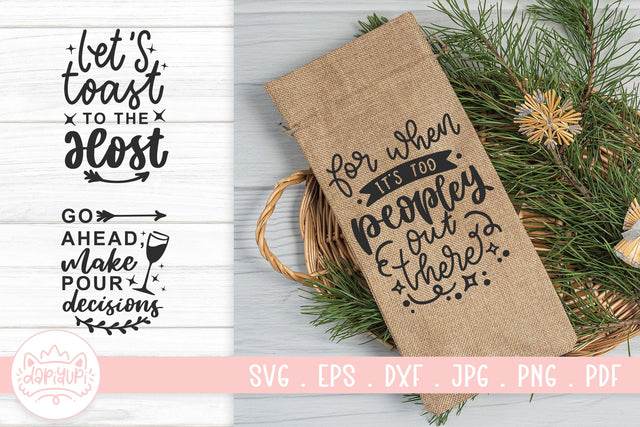 Let's
toast
TO THE
Host
GO
AHEAD,
make
POUR
decisions
for when
IT'S TOO
peopley
out
there
dapiyupi
SVG . EPS . DXF . JPG . PNG . PDF